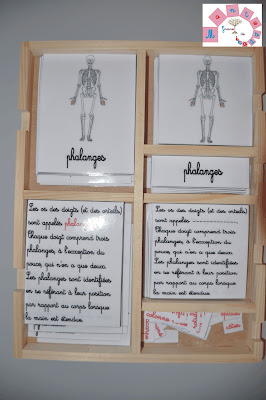 phalanges
phalanges
Les os des doigts (et des orteils)
sont appelés phalanges.
Chaque doigt comprend trois
phalanges, à l'exception du
pouce, qui n'en a que deux.
Les phalanges sont identifiées
en se référant à leur position
par rapport au corps lorsque
la main est étendue.
Les os des doigts (et des orteils)
sont appelés
Chaque doigt comprend trois
phalanges, à l'exception du
pouce, qui n'en a que deux.
Les phalanges sont identifiées
en se référant à leur position
par rapport au corps lorsque
la main est étendue.